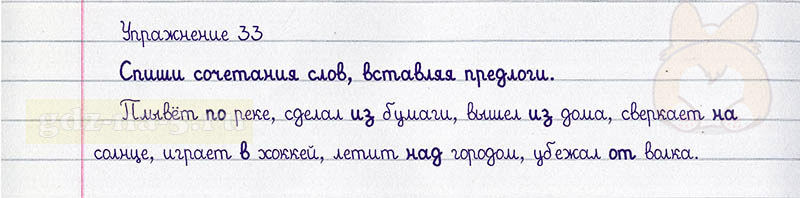 Упражнение 33
Спиши сочетания слов, вставляя предлоги.
Плывёт по реке, сделал из бумаги, вышел из дома, сверкает на
солнце, играет в хоккей, летит над городом, убежал от волка.